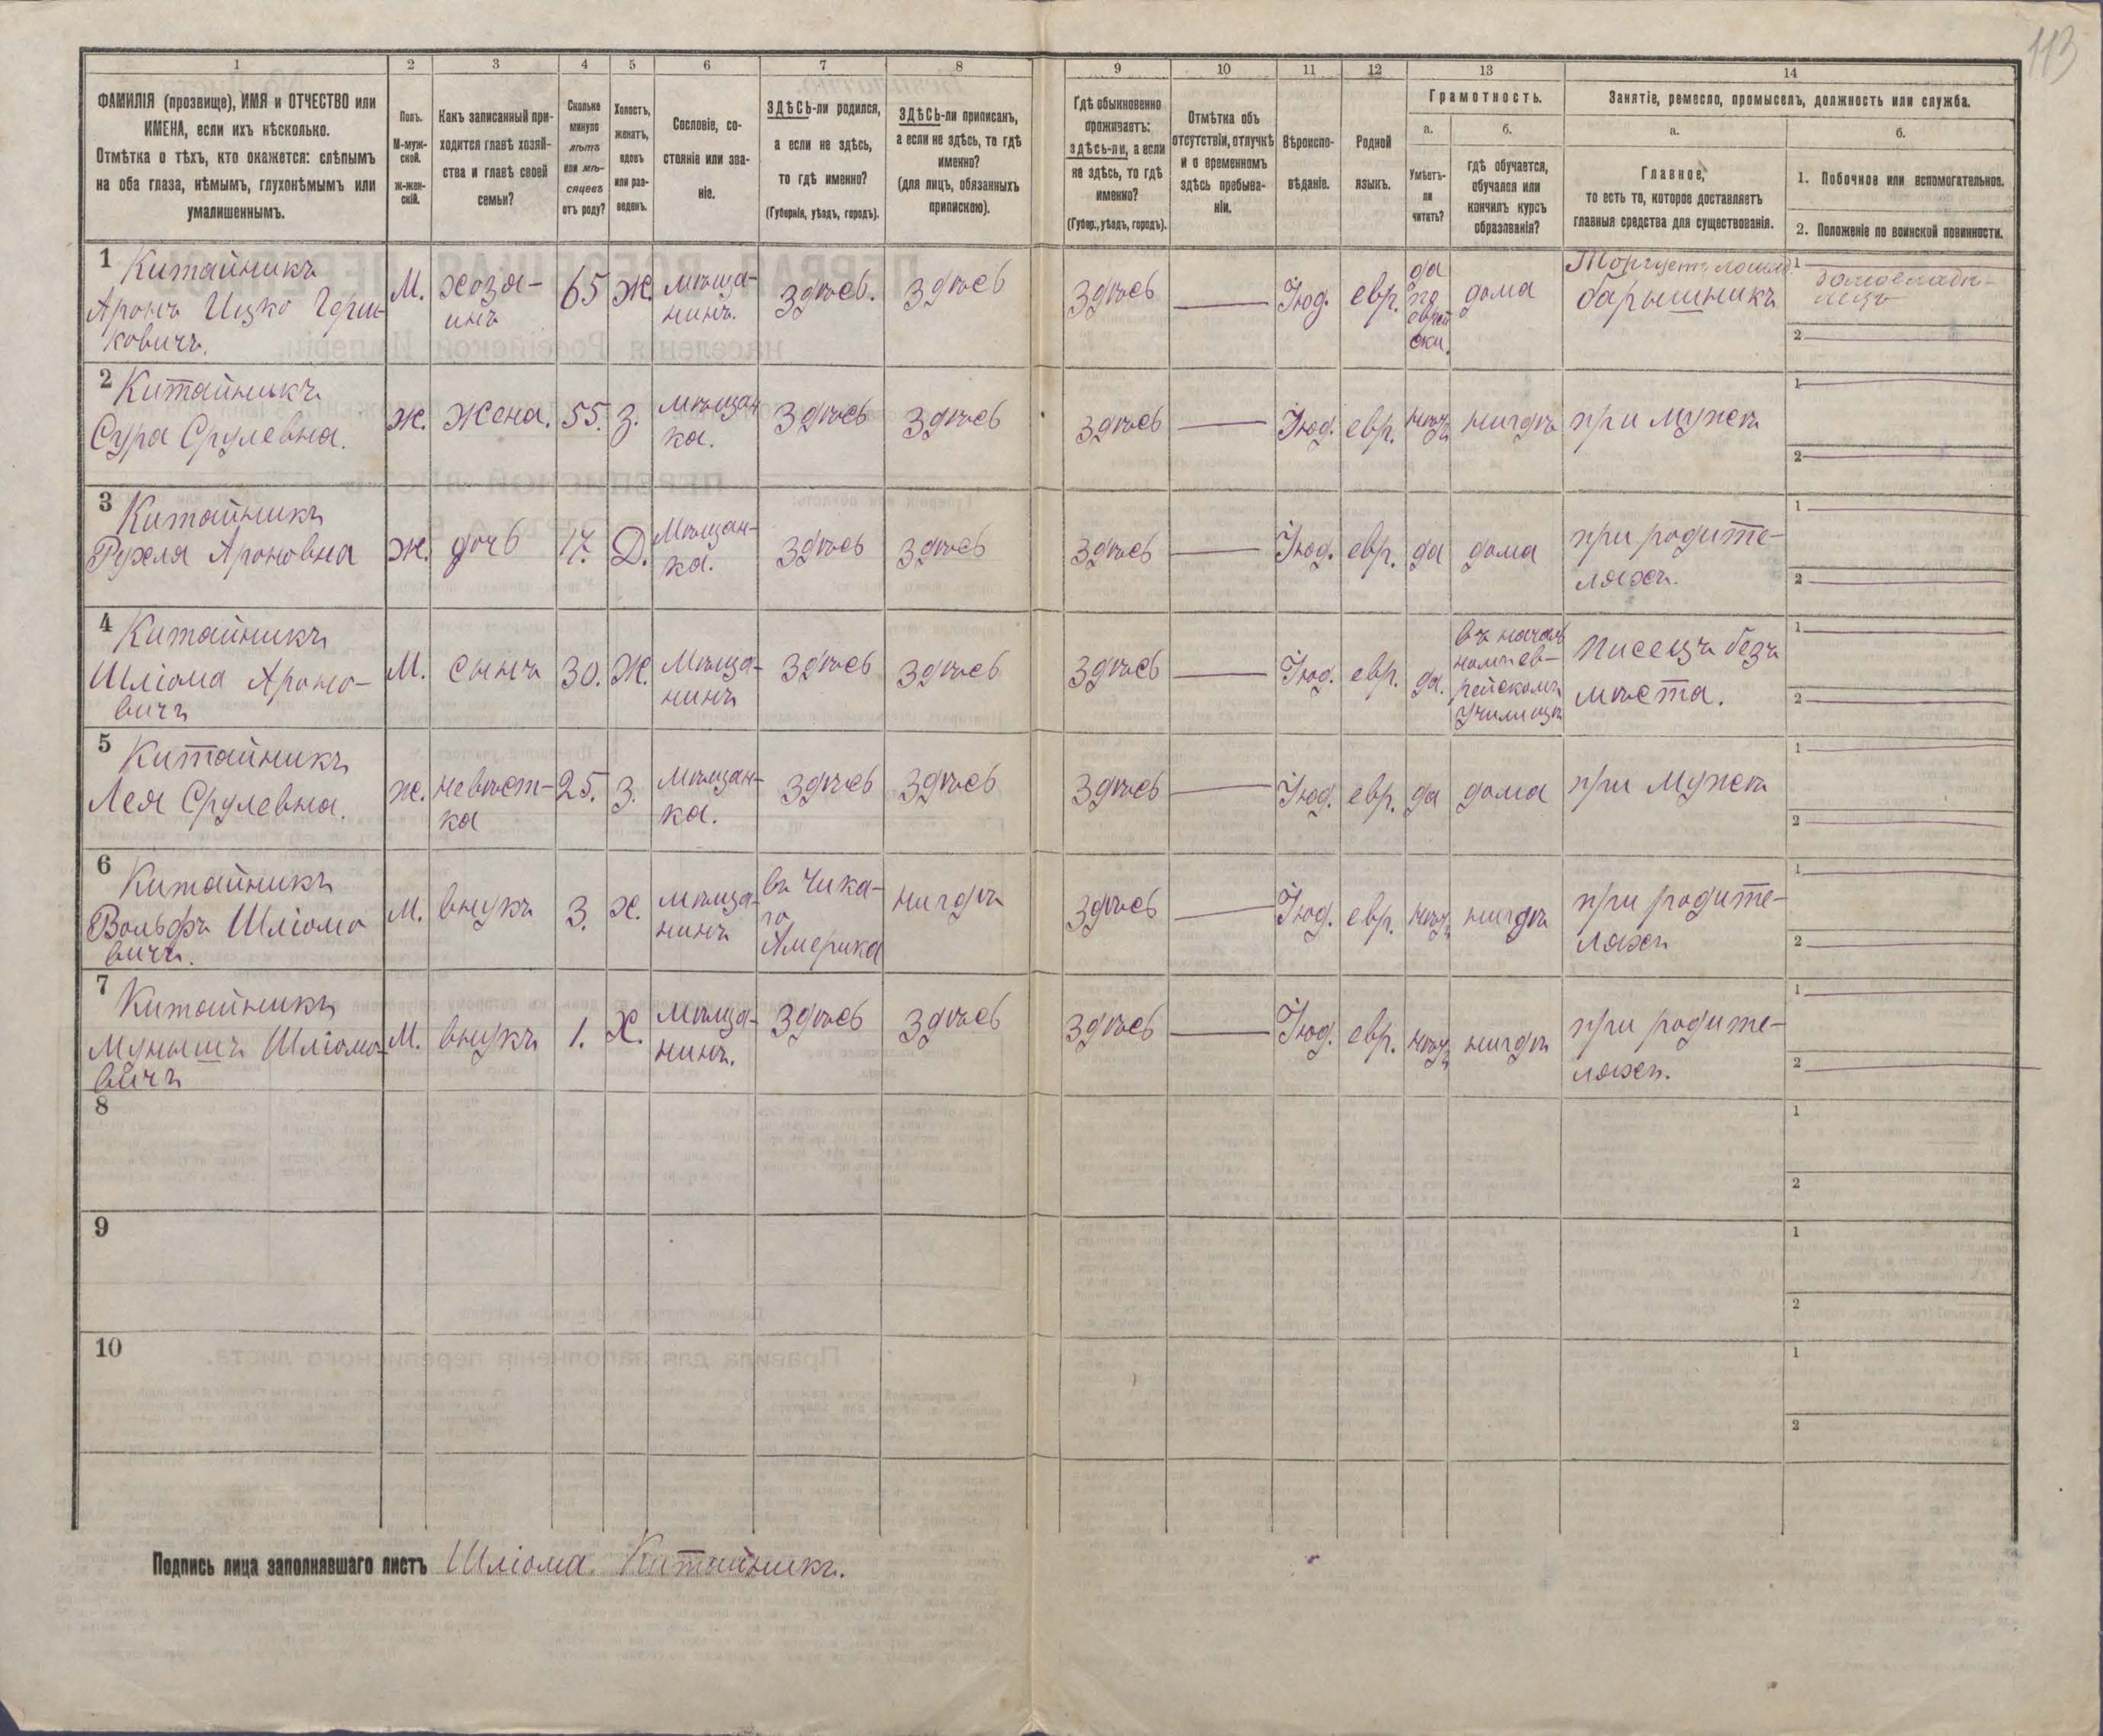 113
1 2 3 4 5 6 7 8 9 10 11 12 13 14
ФАМИЛІЯ (прозвище), ИМЯ и ОТЧЕСТВО или
ИМЕНА, если ихъ нѣсколько.
Отмѣтка о тѣхъ, кто окажется: слѣпымъ
на оба глаза, нѣмымъ, глухонѣмымъ или
умалишеннымъ.
Полъ.
М-муж-
ской.
ж-жен-
скій.
Какъ записанный при-
ходится главѣ хозяй-
ства и главѣ своей
семьи?
Сколько
минуло
лѣтъ
или мѣ-
сяцевъ
отъ роду?
Холостъ,
женатъ,
вдовъ
или раз-
веденъ.
Сословіе, со-
стояніе или зва-
ніе.
ЗДѢСЬ-ли родился,
а если не здѣсь,
то гдѣ именно?
(Губернія, уѣздъ, городъ).
ЗДѢСЬ-ли приписанъ,
а если не здѣсь, то гдѣ
именно?
(для лицъ, обязанныхъ
припискою).
Гдѣ обыкновенно
проживаетъ:
здѣсь-ли, а если
не здѣсь, то гдѣ
именно?
(Губер., уѣздъ, городъ).
Отмѣтка объ
отсутствіи, отлучкѣ
и о временномъ
здѣсь пребыва-
ніи.
Вѣроиспо-
вѣданіе.
Родной
языкъ.
Грамотность.
а.
Умѣетъ-
ли
читать?
б.
гдѣ обучается,
обучался или
кончилъ курсъ
образованія?
Занятіе, ремесло, промыселъ, должность или служба.
а.
Главное,
то есть то, которое доставляетъ
главныя средства для существованія.
б.
1. Побочное или вспомогательное.
2. Положеніе по воинской повинности.
1 Китайникъ
Аронъ Ицко Герш-
ковичъ.
М.
хозя-
инъ
65
Ж.
мѣща-
нинъ.
здѣсь.
здѣсь
здѣсь
Іюд.
евр.
да
по
еврей
ски.
дома
Торгуетъ лошад.
барышникъ
1
домовладѣ-
лецъ
2
2 Китайникъ
Сура Срулевна.
Ж.
Жена.
55.
З.
мѣщан
ка.
здѣсь
здѣсь
здѣсь
Іюд.
евр.
нѣтъ
нигдѣ
при мужѣ
1
2
3 Китайникъ
Рухля Ароновна
Ж.
дочь
17.
Д.
Мѣщан-
ка.
здѣсь
здѣсь
здѣсь
Іюд.
евр.
да
дома
при родите-
ляхъ.
1
2
4 Китайникъ
Шліома Ароно-
вичъ
М.
сынъ
30.
Ж.
Мѣща-
нинъ
здѣсь
здѣсь
здѣсь
Іюд.
евр.
да.
въ началь
номъ ев-
рейскомъ
училищѣ
писецъ безъ
мѣста.
1
2
5 Китайникъ
Лея Срулевна.
Ж.
невѣст-
ка
25.
З.
мѣщан-
ка.
здѣсь
здѣсь
здѣсь
Іюд.
евр.
да
дома
при мужѣ
1
2
6 Китайникъ
Вольфъ Шліомо
вичъ.
М.
внукъ
3.
Х.
мѣща-
нинъ
въ Чика-
го
Америка
нигдѣ
здѣсь
Іюд.
евр.
нѣтъ
нигдѣ
при родите-
ляхъ
1
2
7 Китайникъ
Мунышъ Шліомо-
вичъ
М.
внукъ
1.
Х.
мѣща-
нинъ.
здѣсь
здѣсь
здѣсь
Іюд.
евр.
нѣтъ
нигдѣ
при родите-
ляхъ.
1
2
8
1
2
9
1
2
10
1
2
Подпись лица заполнявшаго листъ Шліома Китайникъ.